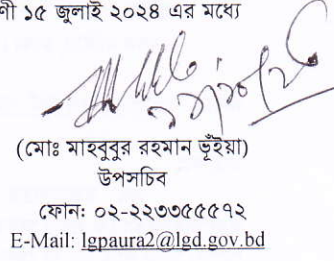 ণী ১৫ জুলাই ২০২৪ এর মধ্যে
(মোঃ মাহবুবুর রহমান ভূঁইয়া)
উপসচিব
ফোন: ০২-২২৩৩৫৫৫৭২
E-Mail: lgpaura2@lgd.gov.bd